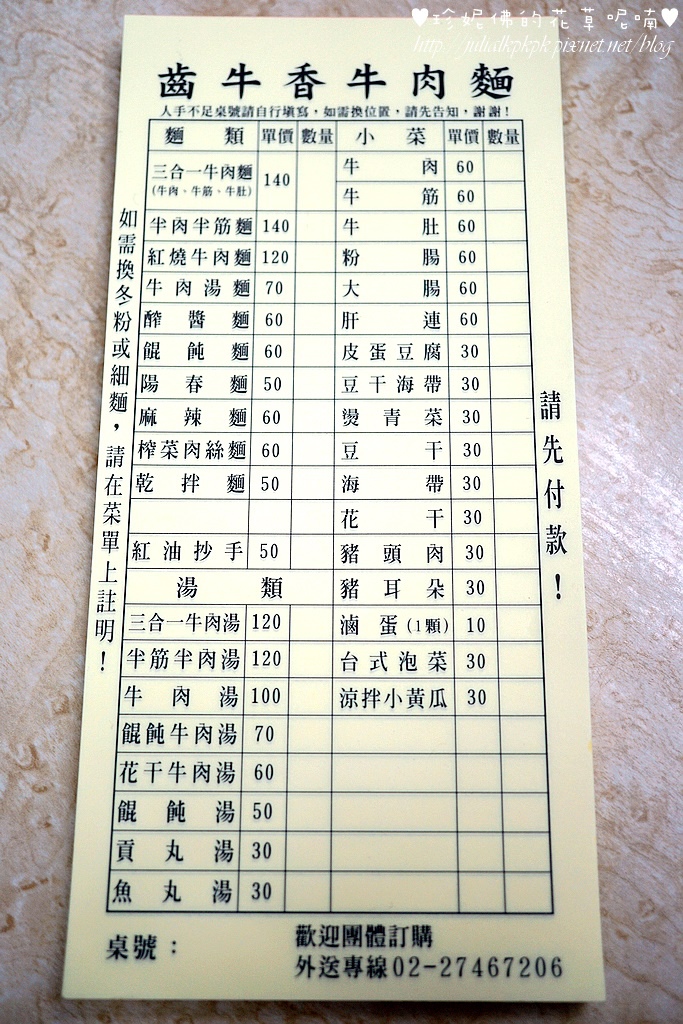 ♥珍妮佛的花草呢喃♥
http://julialkpkpk.pixnet.net/blog
齒牛香牛肉麵
人手不足桌號請自行填寫,如需換位置,請先告知,謝謝!
麵類 單價 數量 小菜 單價 數量
三合一牛肉麵 140 牛肉 60
(牛肉、牛筋、牛肚) 牛筋 60
半肉半筋麵 140 牛肚 60
紅燒牛肉麵 120 粉腸 60
牛肉湯麵 70 大腸 60
醡醬麵 60 肝連 60
餛飩麵 60 皮蛋豆腐 30
陽春麵 50 豆干海帶 30
麻辣麵 60 燙青菜 30
榨菜肉絲麵 60 豆干 30
乾拌麵 50 海帶 30
花干 30
紅油抄手 50 豬頭肉 30
湯類 豬耳朵 30
三合一牛肉湯 120 滷蛋(1顆) 10
半筋半肉湯 120 台式泡菜 30
牛肉湯 100 涼拌小黃瓜 30
餛飩牛肉湯 70
花干牛肉湯 60
餛飩湯 50
貢丸湯 30
魚丸湯 30
如需換冬粉或細麵,請在菜單上註明!
請先付款!
桌號:
歡迎團體訂購
外送專線02-27467206